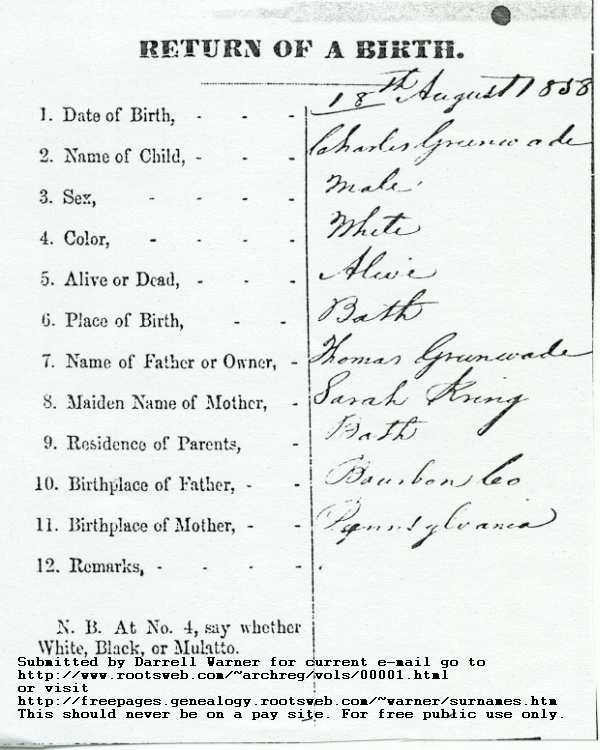 RETURN OF A BIRTH.
1. Date of Birth, - - - 18th August 1858
2. Name of Child, - - - Charles Greenwade
3. Sex, - - - - Male
4. Color, - - - - White
5. Alive or Dead, - - - Alive
6. Place of Birth, - - Bath
7. Name of Father or Owner, - Thomas Greenwade
8. Maiden Name of Mother, - Sarah Kring
9. Residence of Parents, - Bath
10. Birthplace of Father, - - Bourbon Co
11. Birthplace of Mother, - - Pennsylvania
12. Remarks, - - - -
N. B. At No. 4, say whether
White, Black, or Mulatto.
Submitted by Darrell Warner for current e-mail go to
http://www.rootsweb.com/~archreg/vols/00001.html
or visit
http://freepages.genealogy.rootsweb.com/~warner/surnames.htm
This should never be on a pay site. For free public use only.